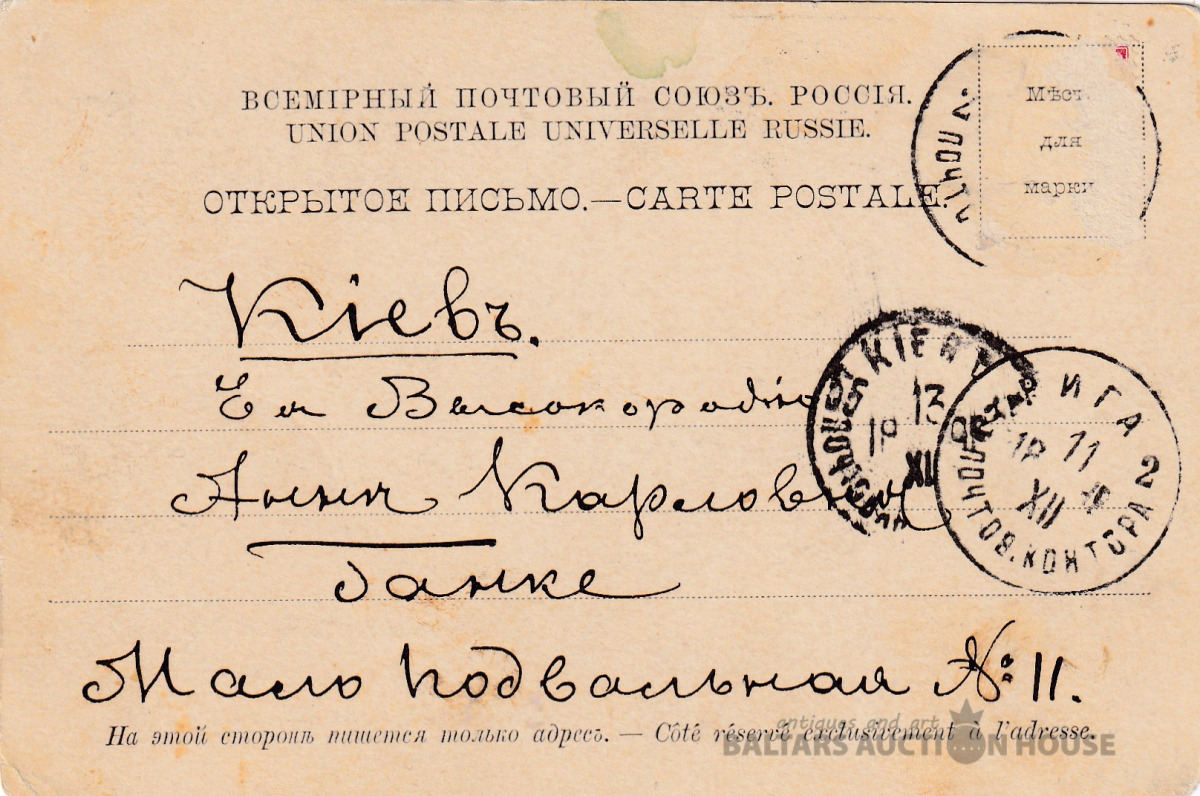 ВСЕМІРНЫЙ ПОЧТОВЫЙ СОЮЗЪ. РОССІЯ.
UNION POSTALE UNIVERSELLE RUSSIE.
ОТКРЫТОЕ ПИСЬМО.—CARTE POSTALE.
Мѣст
для
марки
Кіевъ.
Ея Высокородію
Аннѣ Карловнѣ
Ганке
Мало Подвальная № 11.
КІЕВЪ
13
XII
РИГА 2
11
XII
ПОЧТОВ. КОНТОРА
На этой сторонѣ пишется только адресъ. — Côté réservé exclusivement à l'adresse.
antiques and art
BALTARS AUCTION HOUSE